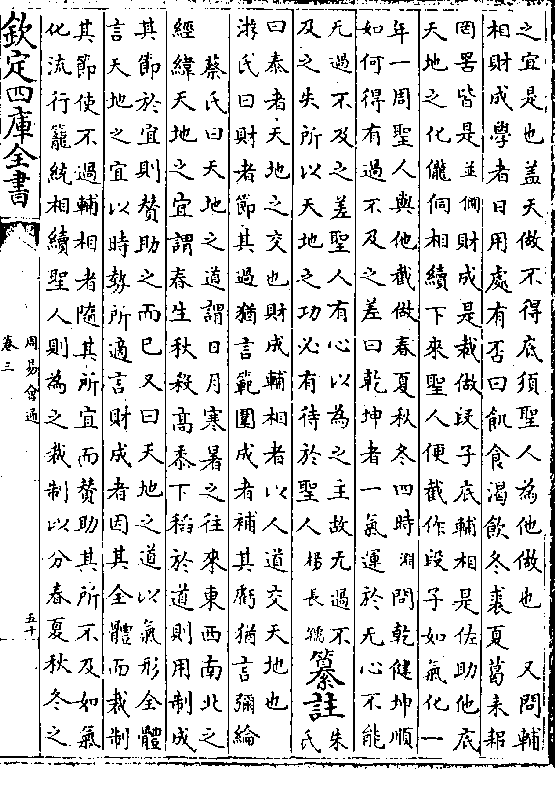 之宜是也盖天做不得底須聖人為他做也　又問輔
相財成學者日用處有否曰飢食渴飲冬裘夏葛耒耜
罔罟皆是並僩財成是裁做叚子底輔相是佐助他底
天地之化儱侗相續下來聖人便截作叚子如氣化一
年一周聖人與他截做春夏秋冬四時淵問乾健坤順
如何得有過不及之差曰乾坤者一氣運於无心不能
无過不及之差聖人有心以為之主故无過不
及之失所以天地之功必有待於聖人楊長孺纂註朱氏
曰泰者天地之交也財成輔相者以人道交天地也
游氏曰財者節其過猶言範圍成者補其虧猶言彌綸
蔡氏曰天地之道謂日月寒暑之往來東西南北之
經緯天地之宜謂春生秋殺高黍下稻於道則用制成
其節於宜則賛助之而已又曰天地之道以氣形全體
言天地之宜以時勢所適言財成者因其全體而裁制
其節使不過輔相者隨其所宜而賛助其所不及如氣
化流行籠統相續聖人則為之裁制以分春夏秋冬之
欽定四庫全書
周易會通
卷三
五十